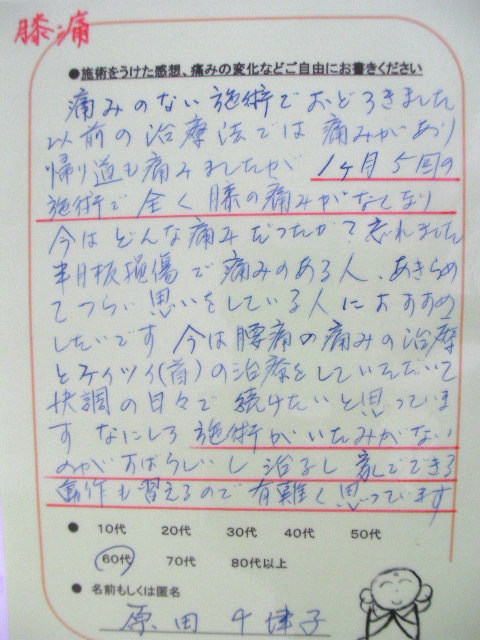 膝痛
●施術をうけた感想、痛みの変化などご自由にお書きください
痛みのない施術でおどろきました
以前の治療法では痛みがあり
帰り道も痛みましたが 1ヶ月5回の
施術で全く膝の痛みがなくなり
今はどんな痛みだったか?忘れました
半月板損傷で痛みのある人、あきらめ
てつらい思いをしている人におすすめ
したいです 今は腰痛の痛みの治療
とケイツイ(首)の治療をしていただいて
快調の日々で続けたいと思っていま
す なにしろ施術がいたみがない
のがすばらしいし治るし家でできる
動作も習えるので有難く思っています
● 10代 20代 30代 40代 50代
60代 70代 80代以上
● 名前もしくは匿名
原田千津子